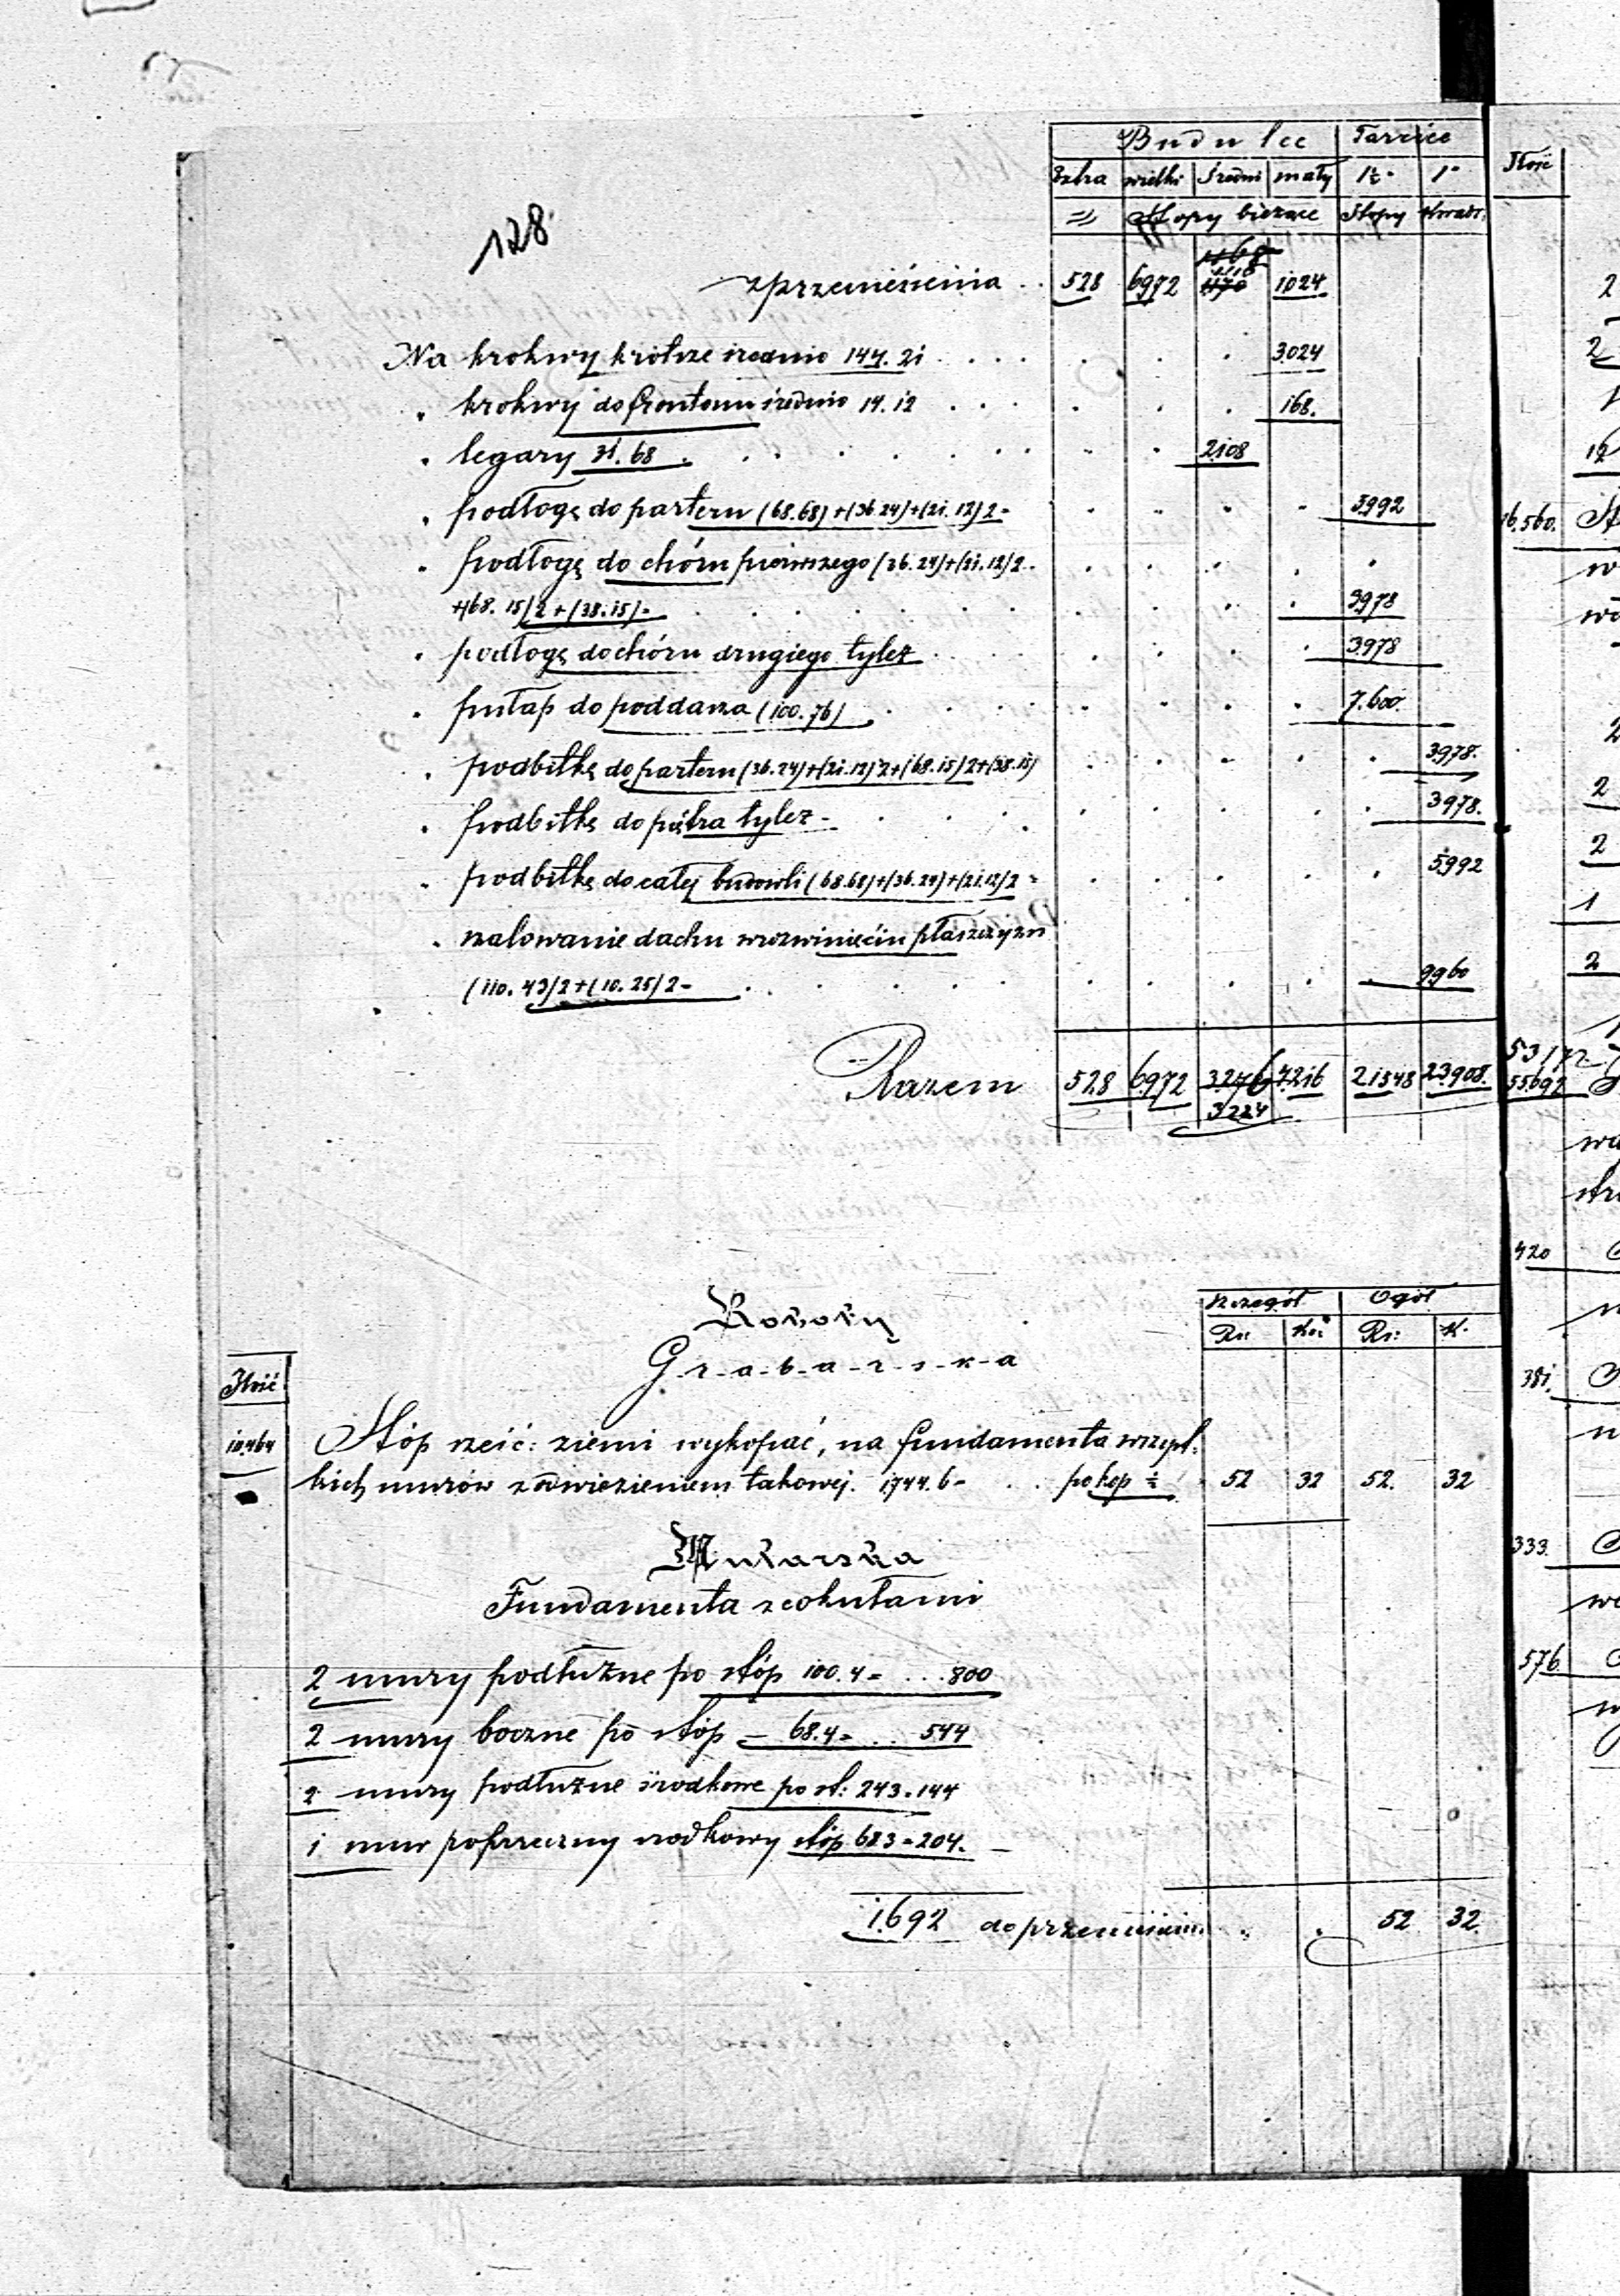 128
Budulec Tarcice
Extra wielki średni mały 1½" 1"
Stopy bieżące Stopy kwadr:
1168
z przeniesienia . . 528 6972 1170 1024
1116
Na krokwy krótsze średnio 144. 21 . . . . 3024
" krokwy do frontonu średnio 14. 12 . . . 168.
" legary 31. 68 . . . . . 2108
" podłogę do parteru (68.68)+(36.24)+(21.12)2= 5992
" podłogę do chóru pierwszego (36.24)+(21.12)2
+(68.15)2+(38.15)= 3978
" podłogę do chóru drugiego tyleż . . . 3978
" pułap do poddasza (100.76) . . . 7.600.
" podbitkę do parteru (36.24)+(21.12)2+(68.15)2+(38.15) 3978.
" podbitkę do piętra tyleż - . . . 3978.
" podbitkę do całej budowli (68.68)+(36.24)+(21.12)2 = 5992
" szalowanie dachu w rozwinięciu płaszczyzn
(110. 43)2+(10. 25)2= . . . 9960
Razem 528 6972 3276 4216 21548 23.908.
3224
Roboty
Grabarska
Szczegół Ogół
Rs: Ko: Rs: K.
Ilość
10,464 Stóp sześć: ziemi wykopać, na fundamenta wszyst:
kich murów z odwiezieniem takowej. 1744. 6= . . po kop ½ 52 32 52. 32
Mularska
Fundamenta z cokułami
2 mury podłużne po stóp 100. 4= . . . 800
2 mury boczne po stóp - 68.4= . . . 544
2 mury podłużne środkowe po st: 24 3=144
1 mur poprzeczny środkowy stóp 68 3=204.
1.692 do przeniesienia . . 52 32.
Ilość
16.560.
53172
55692
420
381.
333.
576